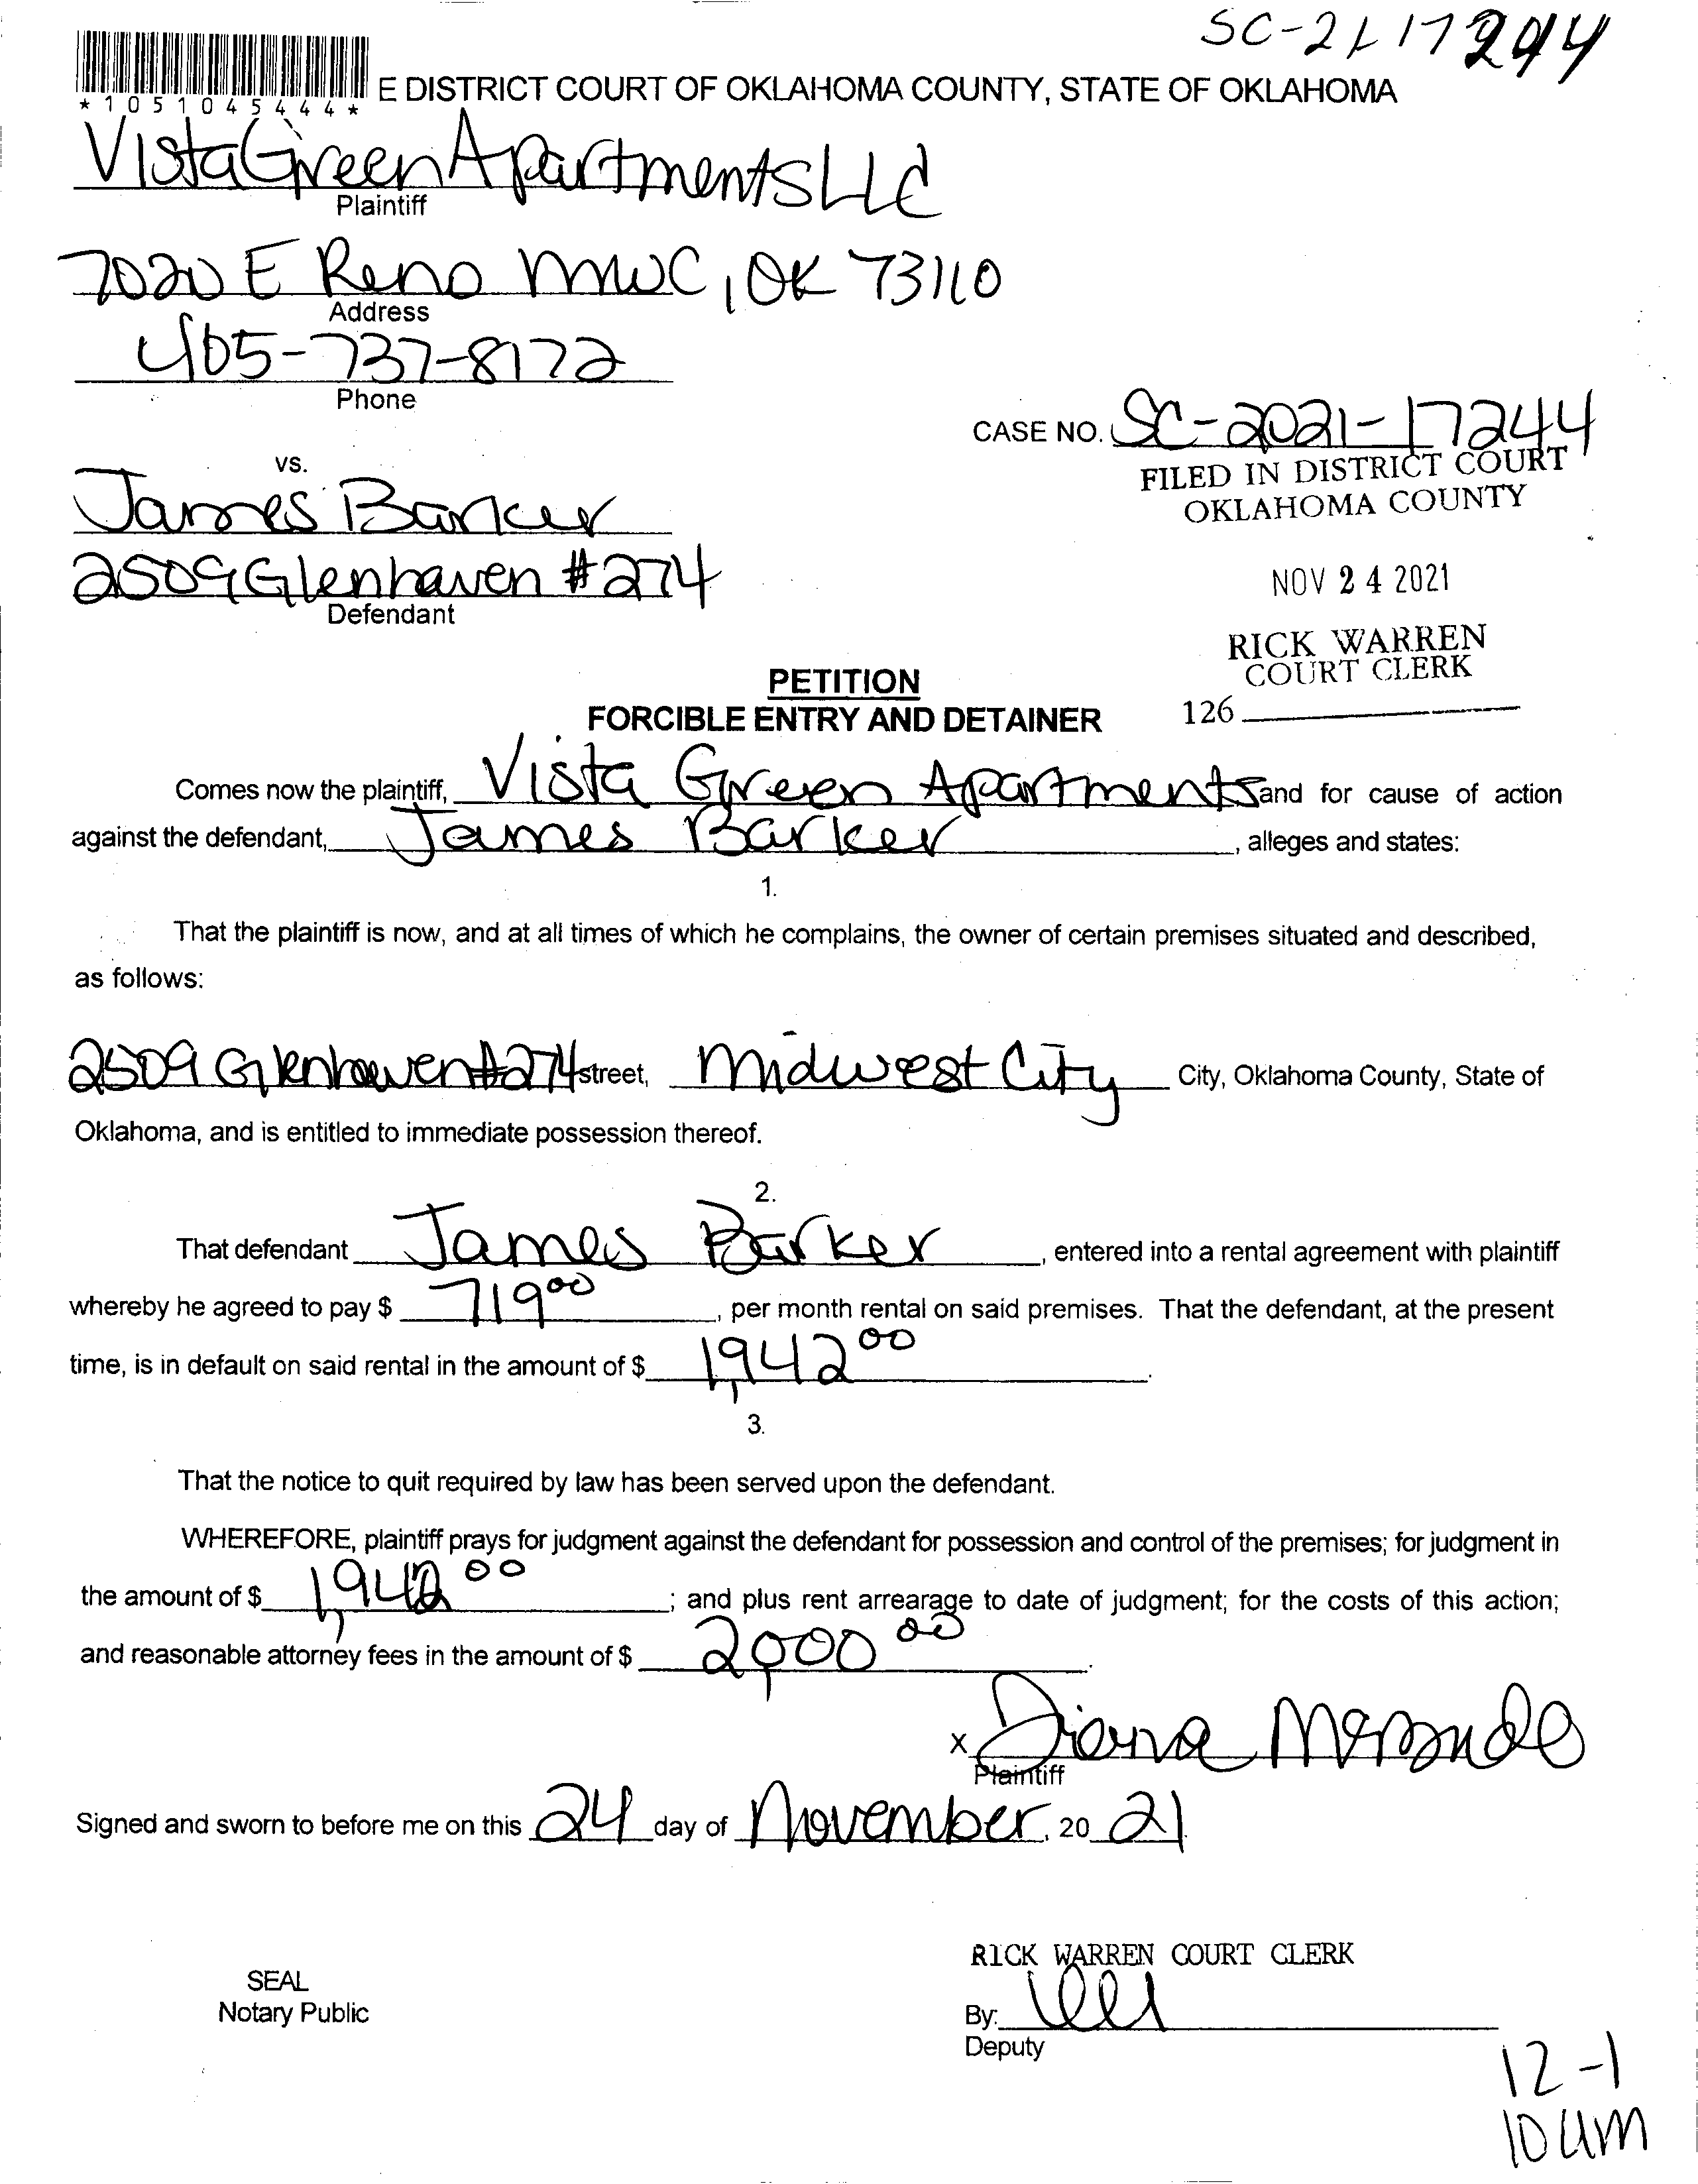 SC-21 17244
*1051045444*
E DISTRICT COURT OF OKLAHOMA COUNTY, STATE OF OKLAHOMA
Vista Green Apartments LLC
Plaintiff
7020 E Reno MWC, OK 73110
Address
405-737-8172
Phone
CASE NO. SC-2021-17244
FILED IN DISTRICT COURT
OKLAHOMA COUNTY
vs.
James Barker
2509 Glenhaven #274
Defendant
NOV 24 2021
RICK WARREN
COURT CLERK
126
PETITION
FORCIBLE ENTRY AND DETAINER
Comes now the plaintiff, Vista Green Apartments and for cause of action
against the defendant, James Barker, alleges and states:
1.
That the plaintiff is now, and at all times of which he complains, the owner of certain premises situated and described,
as follows:
2509 Glenhaven #274 street, Midwest City City, Oklahoma County, State of
Oklahoma, and is entitled to immediate possession thereof.
2.
That defendant James Barker, entered into a rental agreement with plaintiff
whereby he agreed to pay $ 719 00, per month rental on said premises. That the defendant, at the present
time, is in default on said rental in the amount of $ 1,942 00.
3.
That the notice to quit required by law has been served upon the defendant.
WHEREFORE, plaintiff prays for judgment against the defendant for possession and control of the premises; for judgment in
the amount of $ 1,942 00; and plus rent arrearage to date of judgment; for the costs of this action;
and reasonable attorney fees in the amount of $ 2,000 00.
x Diana
Plaintiff
Signed and sworn to before me on this 24 day of November, 20 21.
RICK WARREN COURT CLERK
SEAL
Notary Public
By:
Deputy
12-1
10 am